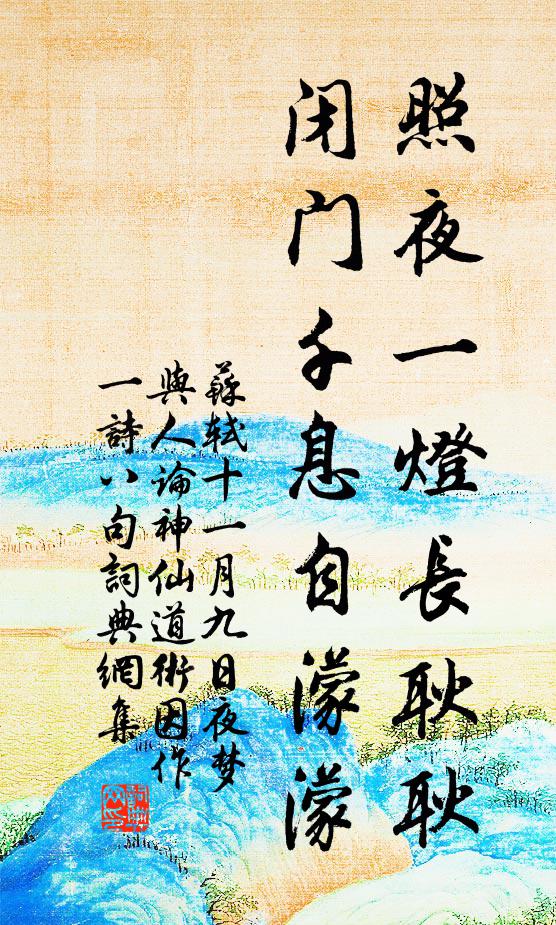 照夜一燈長耿耿
闭门千息自濛濛
蘇軾十一月九日夜梦
與人論神仙道術因作
一詩八句詞典網集